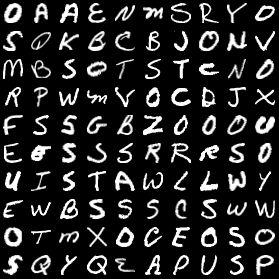 O A A E N m S R Y O
S Q K B C B J O N V
M B S O T S T C N O
R P W m V O C D J X
F S S G B Z O O O U
E S S S S R R R S O
U I S T A W L L W Y
E W B S S S C S W W
O T m X O C E O S O
S Q Y Q E A P U S P